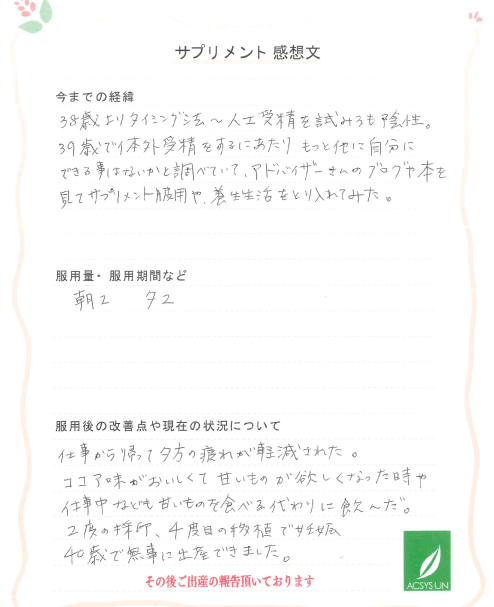 サプリメント 感想文
今までの経緯
38歳よりタイミング法〜人工受精を試みるも陰性。
39歳で体外受精をするにあたり もっと他に自分に
できる事はないかと調べていて、アドバイザーさんのブログや本を
見てサプリメント服用や、養生生活をとり入れてみた。
服用量・服用期間など
朝2 夕2
服用後の改善点や現在の状況について
仕事から帰って夕方の疲れが軽減された。
ココア味がおいしくて甘いものが欲しくなった時や
仕事中なども甘いものを食べる代わりに飲んだ。
2度の採卵、4度目の移植で妊娠
40歳で無事に出産できました。
その後ご出産の報告頂いております
ACSYSUN